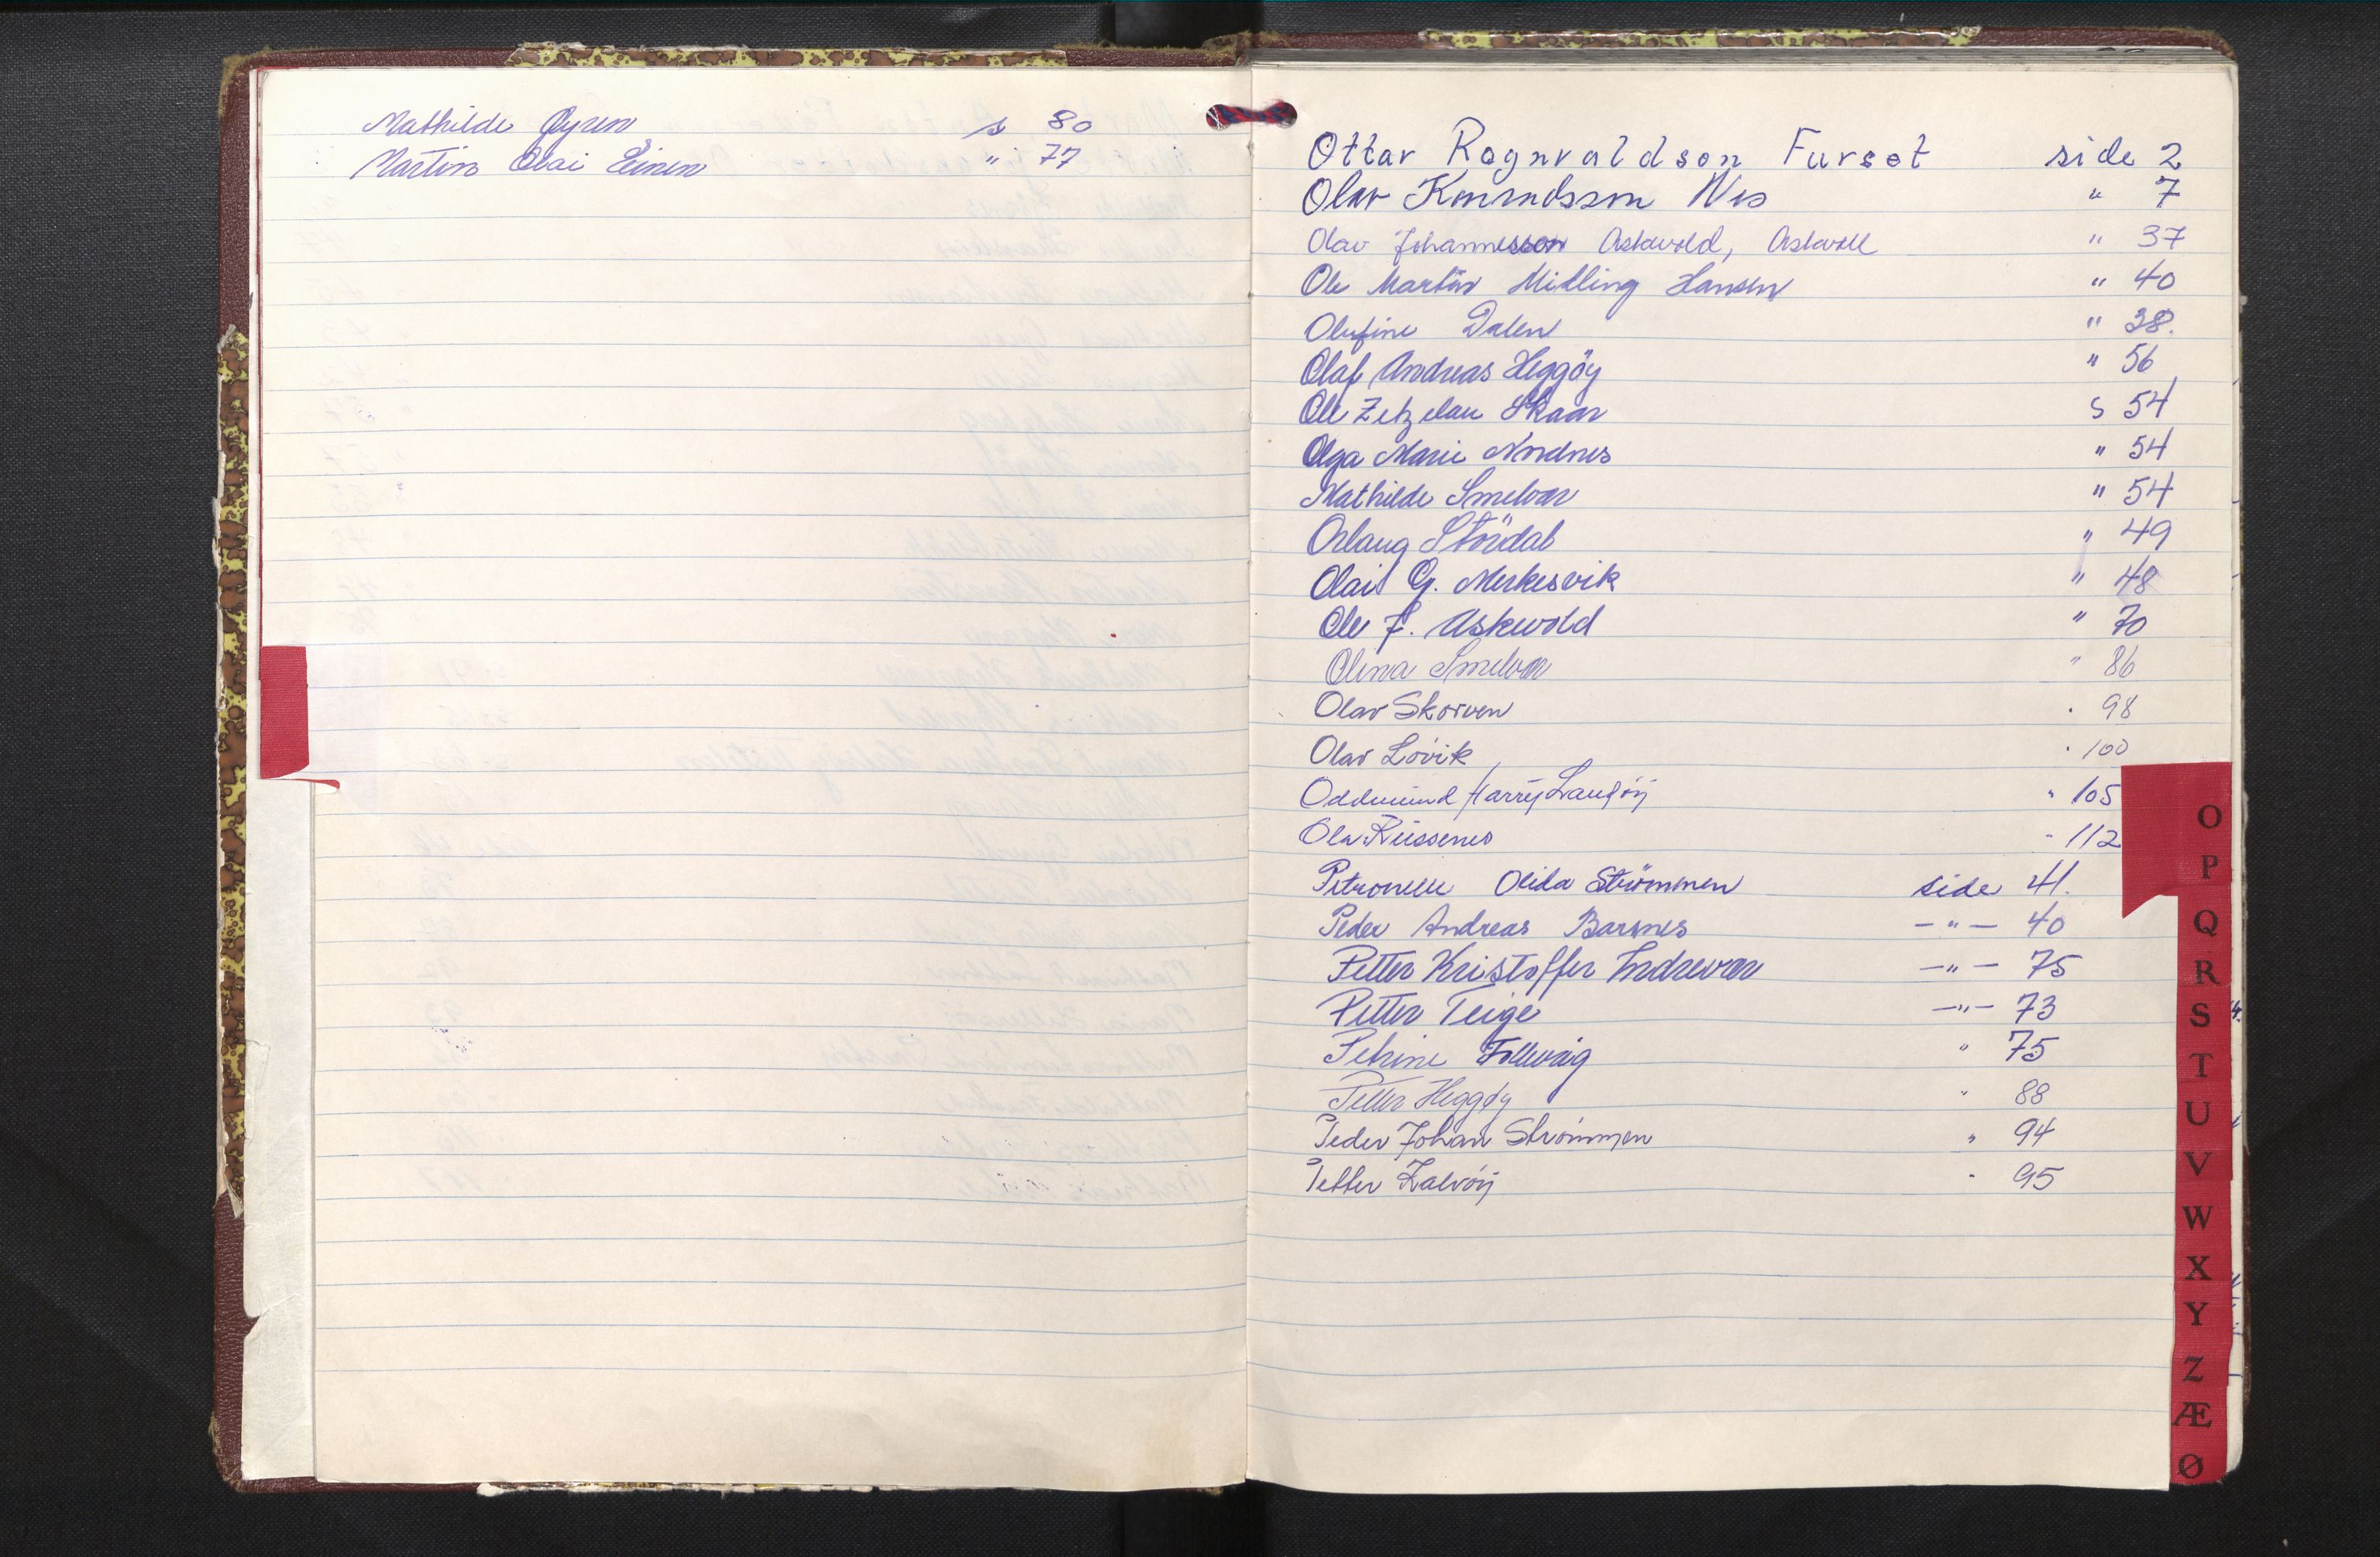 Mathilde Øyren s 80
Martin Olai Einen " 77
Ottar Rognvaldson Furset side 2
Olav Knundsson Nes " 7
Olav Johannesson Askevold, Askvoll " 37
Ole Martin Midling Hansen " 40
Olufine Dalen " 38.
Olaf Andreas Heggöy " 56
Ole Zetzelau Skaar S 54
Olga Marie Nordnes " 54
Mathilde Smelvær " 54
Oslaug Stördal " 49
Olai G. Merkesvik " 48
Ole J. Askevold " 70
Olina Smelvær " 86
Olav Skorven " 98
Olav Lövik " 100
Oddmund Harry Langöy " 105
Ola Risssenes " 112
Petronelle Olida Strömmen side 41.
Peder Andreas Barsnes — " — 40
Petter Kristoffer Indrevær — " — 75
Petter Teige — " — 73
Petrine Follevåg " 75
Petter Heggøy " 88
Peder Johan Strömmen " 94
Petter Kalvöy " 95
O
P
Q
R
S
T
U
V
W
X
Y
Z
Æ
Ø